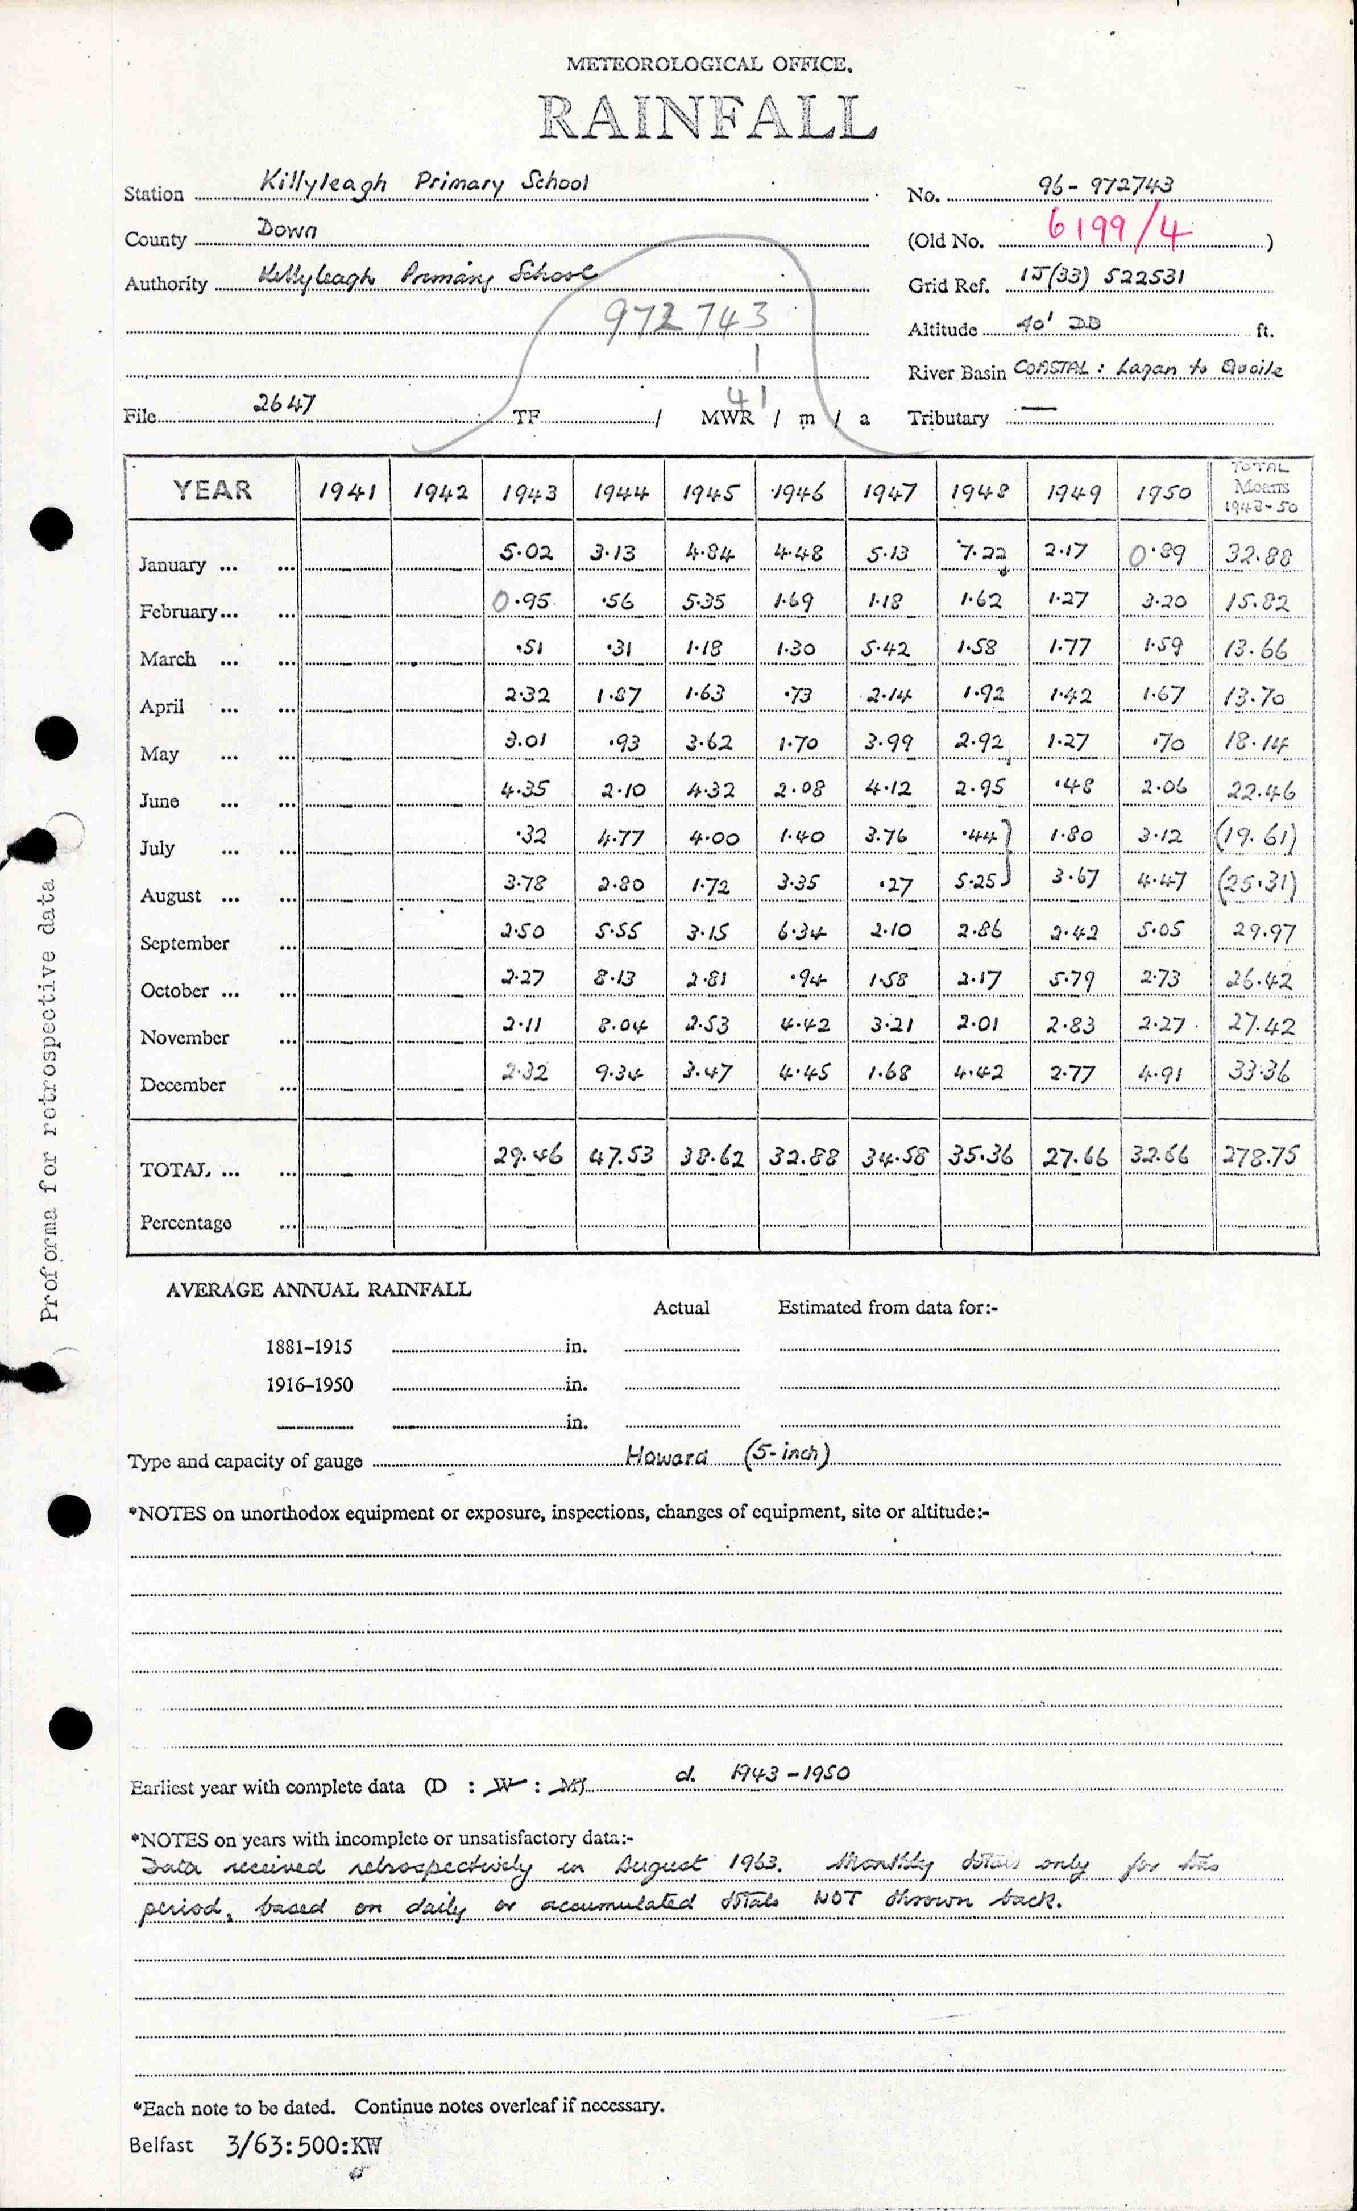 METEOROLOGICAL OFFICE.
RAINFALL
Station Killyleagh Primary School No. 96-972743
County Down (Old No. 6199/4)
Authority Killyleagh Primary School Grid Ref. IJ(33) 522531
972743 Altitude 40' DD ft.
1 River Basin COASTAL : Lagan to Quoile
41
File 2647 TF / MWR / m / a Tributary —
YEAR 1941 1942 1943 1944 1945 1946 1947 1948 1949 1950 TOTAL Means 1943-50
January ... ... 5.02 3.13 4.84 4.48 5.13 7.22 2.17 0.89 32.88
February ... ... 0.95 .56 5.35 1.69 1.18 1.62 1.27 3.20 15.82
March ... ... .51 .31 1.18 1.30 5.42 1.58 1.77 1.59 13.66
April ... ... 2.32 1.87 1.63 .73 2.14 1.92 1.42 1.67 13.70
May ... ... 3.01 .93 3.62 1.70 3.99 2.92 1.27 .70 18.14
June ... ... 4.35 2.10 4.32 2.08 4.12 2.95 .48 2.06 22.46
July ... ... .32 4.77 4.00 1.40 3.76 .44} 1.80 3.12 (19.61)
August ... ... 3.78 2.80 1.72 3.35 .27 5.25} 3.67 4.47 (25.31)
September ... 2.50 5.55 3.15 6.34 2.10 2.86 2.42 5.05 29.97
October ... ... 2.27 8.13 2.81 .94 1.58 2.17 5.79 2.73 26.42
November ... 2.11 8.04 2.53 4.42 3.21 2.01 2.83 2.27 27.42
December ... 2.32 9.34 3.47 4.45 1.68 4.42 2.77 4.91 33.36
TOTAL ... ... 29.46 47.53 38.62 32.88 34.58 35.36 27.66 32.66 278.75
Percentage ...
Proforma for retrospective data
AVERAGE ANNUAL RAINFALL
Actual Estimated from data for:-
1881–1915 in.
1916–1950 in.
in.
Type and capacity of gauge Howard (5-inch)
*NOTES on unorthodox equipment or exposure, inspections, changes of equipment, site or altitude:-
Earliest year with complete data (D : W : M) d. 1943-1950
*NOTES on years with incomplete or unsatisfactory data:-
Data received retrospectively in August 1963. Monthly totals only for this
period, based on daily or accumulated totals NOT thrown back.
*Each note to be dated. Continue notes overleaf if necessary.
Belfast 3/63:500:KW